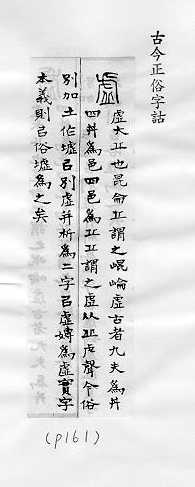 古今正俗字詁
虛
虛大丘也昆侖丘謂之崐崘虛古者九夫爲井
四井爲邑四邑爲丘丘謂之虛从丘虍聲今俗
別加土作墟㠯別虛并析爲二字㠯虛嫥爲虛實字
本義則㠯俗墟爲之矣
(p161)